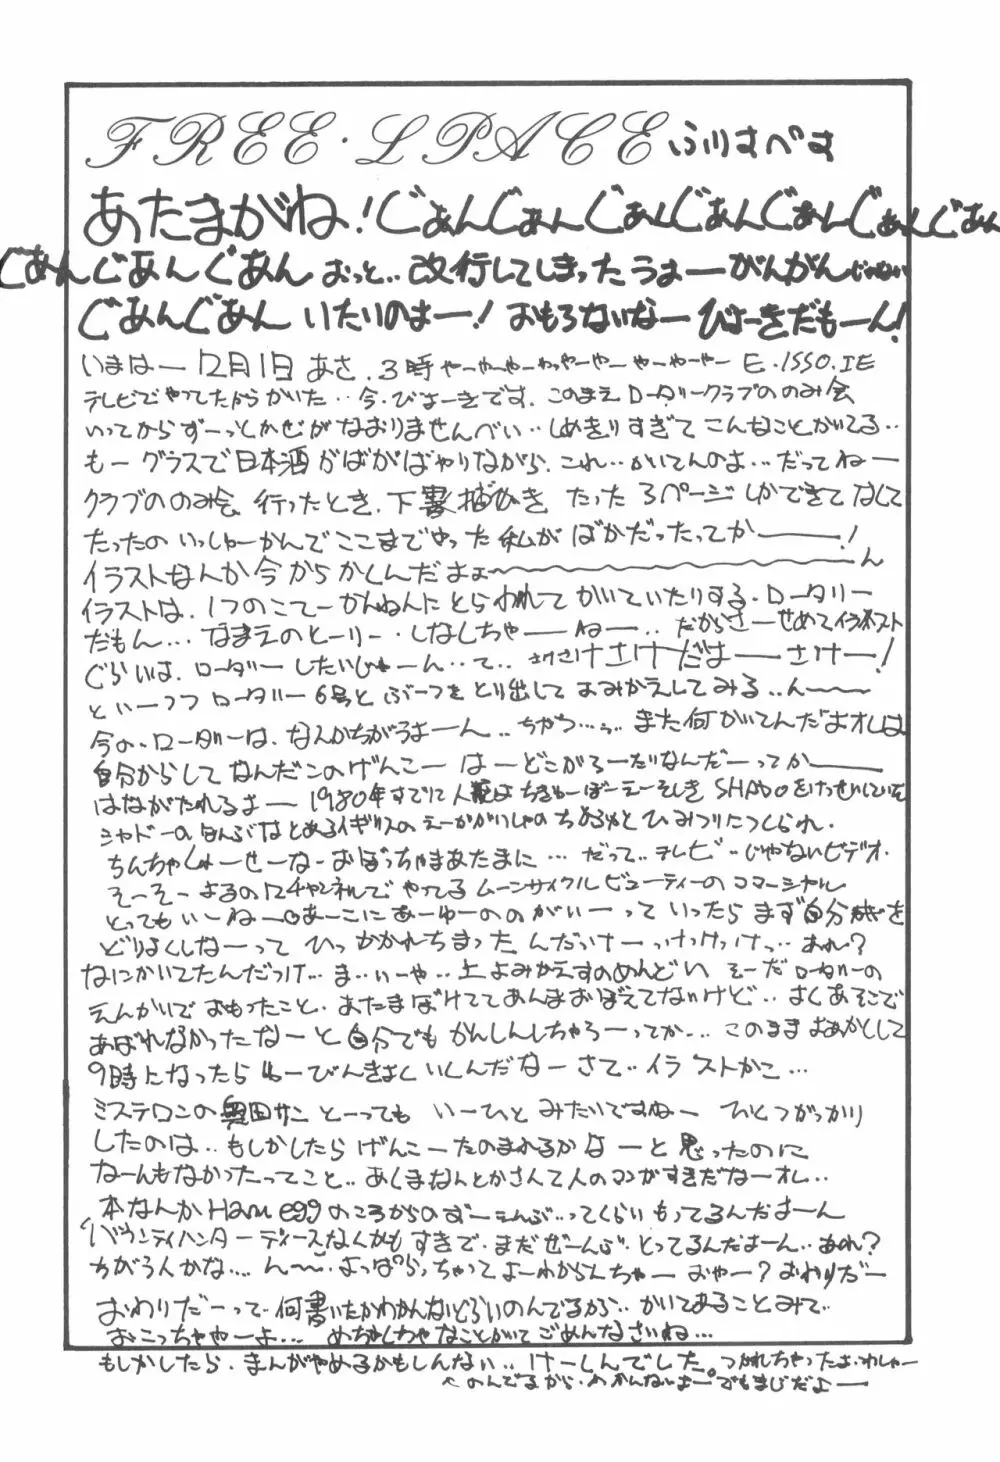 FREE・LPACE ふりすぺす
あたまがね！ぐあんぐあんぐあんぐあんぐあんぐあんぐあん
ぐあんぐあんぐあん おっと‥改行してしまったうおーがんがんじゃない
ぐあんぐあん いたいのよー！おもろないなー びょーきだもーん！
いまはー12月1日 あさ．3時 E．ISSO．IE
テレビでやってたからかいた‥今．びょーきです．このまえ ローダークラブののみ会
いってからずーっとかぜがなおりませんべい‥しめきりすぎて こんなことかいてる‥
もーグラスで日本酒がばがばやりながら．これ‥かいてんのよ…だってねー
クラブののみ会 行ったとき．下書 たった3ページしかできてなくて
たったの いっしゅーかんでここまでやった私が ばかだったってかー！
イラストなんか今からかくんだよぉ〜ん
イラストは．1つのこてーかんねんにとらわれて かいていたりする．ロータリー
だもん…なまえのとーりー．しなくちゃーねー‥だからさーせめてイラスト
ぐらいは．ローダー したいひゅーん‥て‥さけさけさけだよーさけー！
といーつつ ローダー6号と ぶーつをとり出して よみかえしてみる‥ん〜
今の．ローダーは．なんかちがうよーん‥ちがつ…また何かいてんだよオレは
自分からして なんだこのげんこー はーどこがろーだりなんだーってかー
はながたれるよー 1980年すでに人類は ちきゅーぼーえーそしき SHADOをけっせいしていた
シャドーのほんぶはとあるイギリスのえーがかいしゃの ちかふかと ひみつりにつくられ．
ちんちゃしょーせーなーおぼっちゃまあたまに…だって‥テレビ‥じゃないビデオ．
そーそーよるの12チャンネルで やってる ムーンサイクルビューティーのコマーシャル
とってもいーねー あーこにあーゆーののがいーって いったらまず自分 を
どりょくしなーって ひっかかれちまったんだっけーっけっけっけっ‥あれ？
なにかいてたんだっけ‥ま‥いーや‥上よみかえすのめんどい そーだローダーの
えんかいで おもったこと．あたまぼけててあんまおぼえてないけど‥よくあそこで
あばれなかったなーと自分でも かんしんしちゃろーってか…このままよあかして
9時になったら ゆーびんきょくいくんだなーさて‥イラストかこ…
ミステロンの奥田サン とーっても いーひと みたいですねー ひとつがっかり
したのは‥もしかしたら げんこーたのまれるかなーと思ったのに
なーんもなかったってこと‥あくまなんとかさんて人のマンガすきだなーオレ‥
本なんかHam eggのころからのずーえんぶ‥ってくらい もってるんだよーん
バウンティハンターディースなくかもすきで．まだぜーんぶ．とってるんだよーん‥あれ？
ちがう人かな…ん〜．よっぱらっちゃってよーわからんちゃー おやー？おわりだー
おわりだーって．何書いたかわかんないくらいのんでるから‥かいてあることみて‥
おこっちゃやーよ…めちゃくちゃなことかいて ごめんなさいね…
もしかしたら．まんがやめるかもしんない‥けーしんでした。つかれちゃったよ．わしゃー
へのんでるから．わかんないよーでもまじだよー